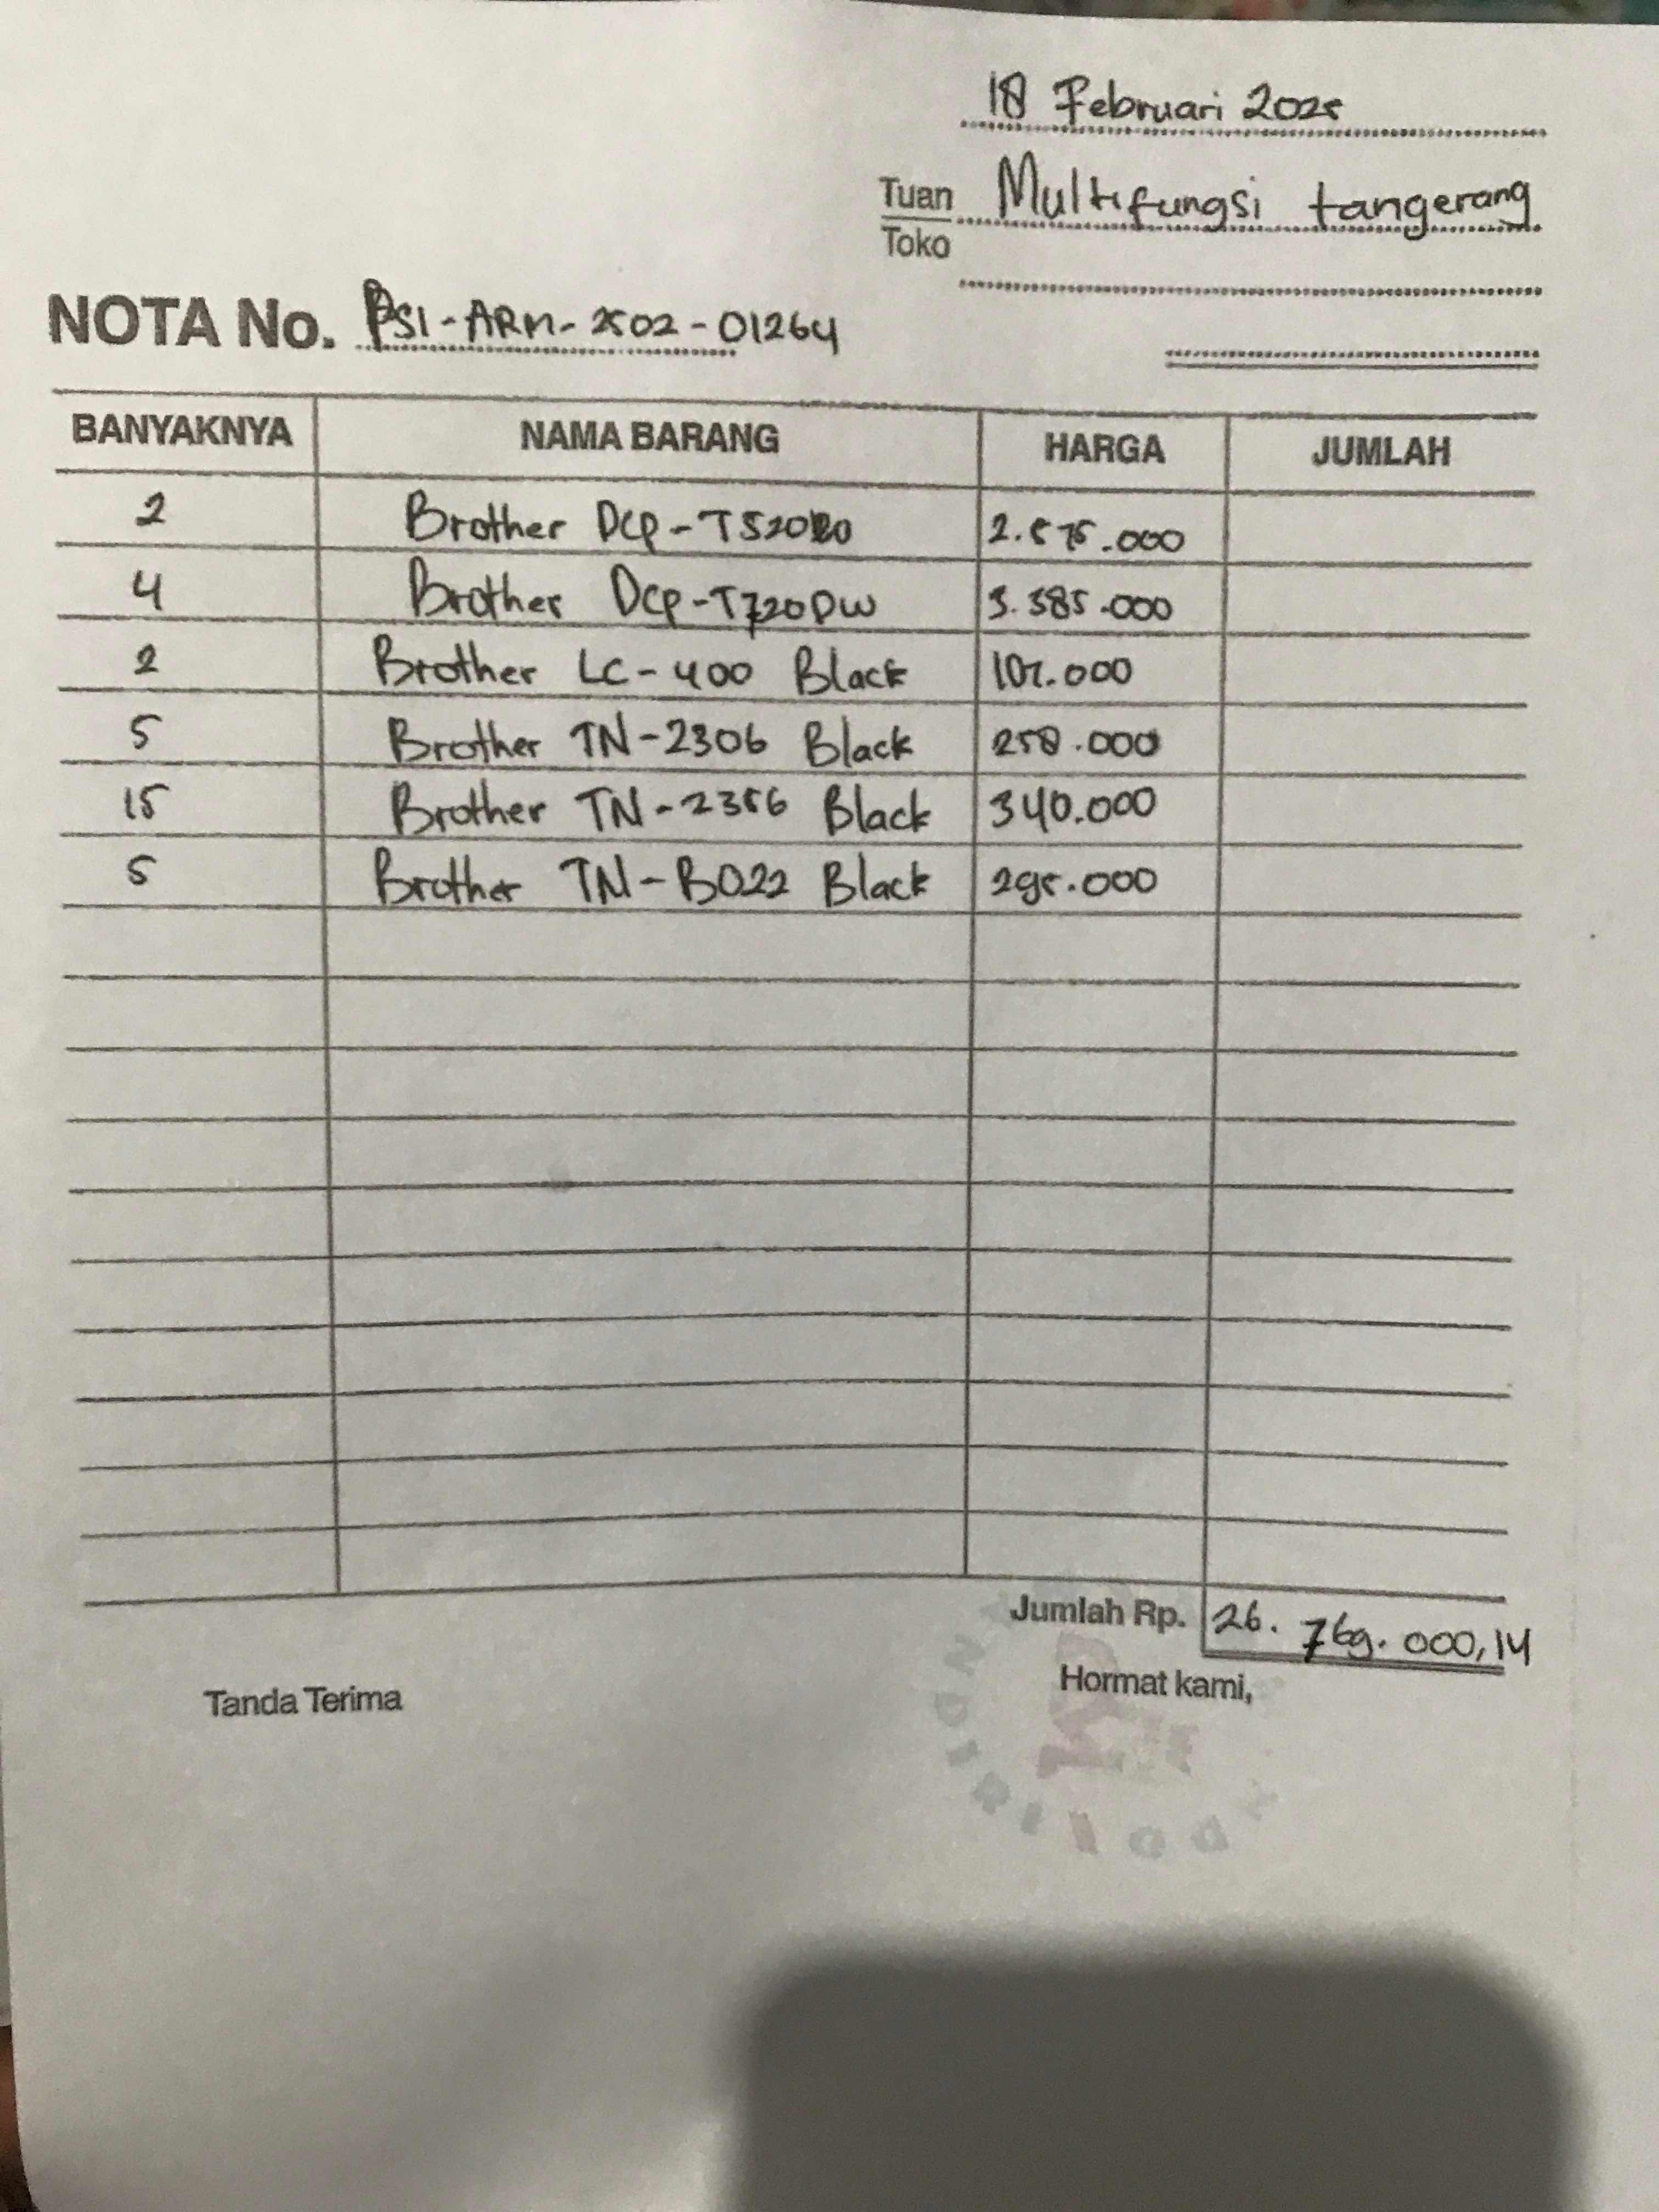 18 Februari 2025
Tuan Multifungsi tangerang
Toko
NOTA No. PSI-ARM-2502-01264
BANYAKNYA NAMA BARANG HARGA JUMLAH
2 Brother DCP-T520 2.575.000
4 Brother DCP-T720DW 3.385.000
2 Brother LC-400 Black 102.000
5 Brother TN-2306 Black 258.000
15 Brother TN-2356 Black 340.000
5 Brother TN-B022 Black 295.000
Jumlah Rp. 26.769.000,14
Tanda Terima Hormat kami,